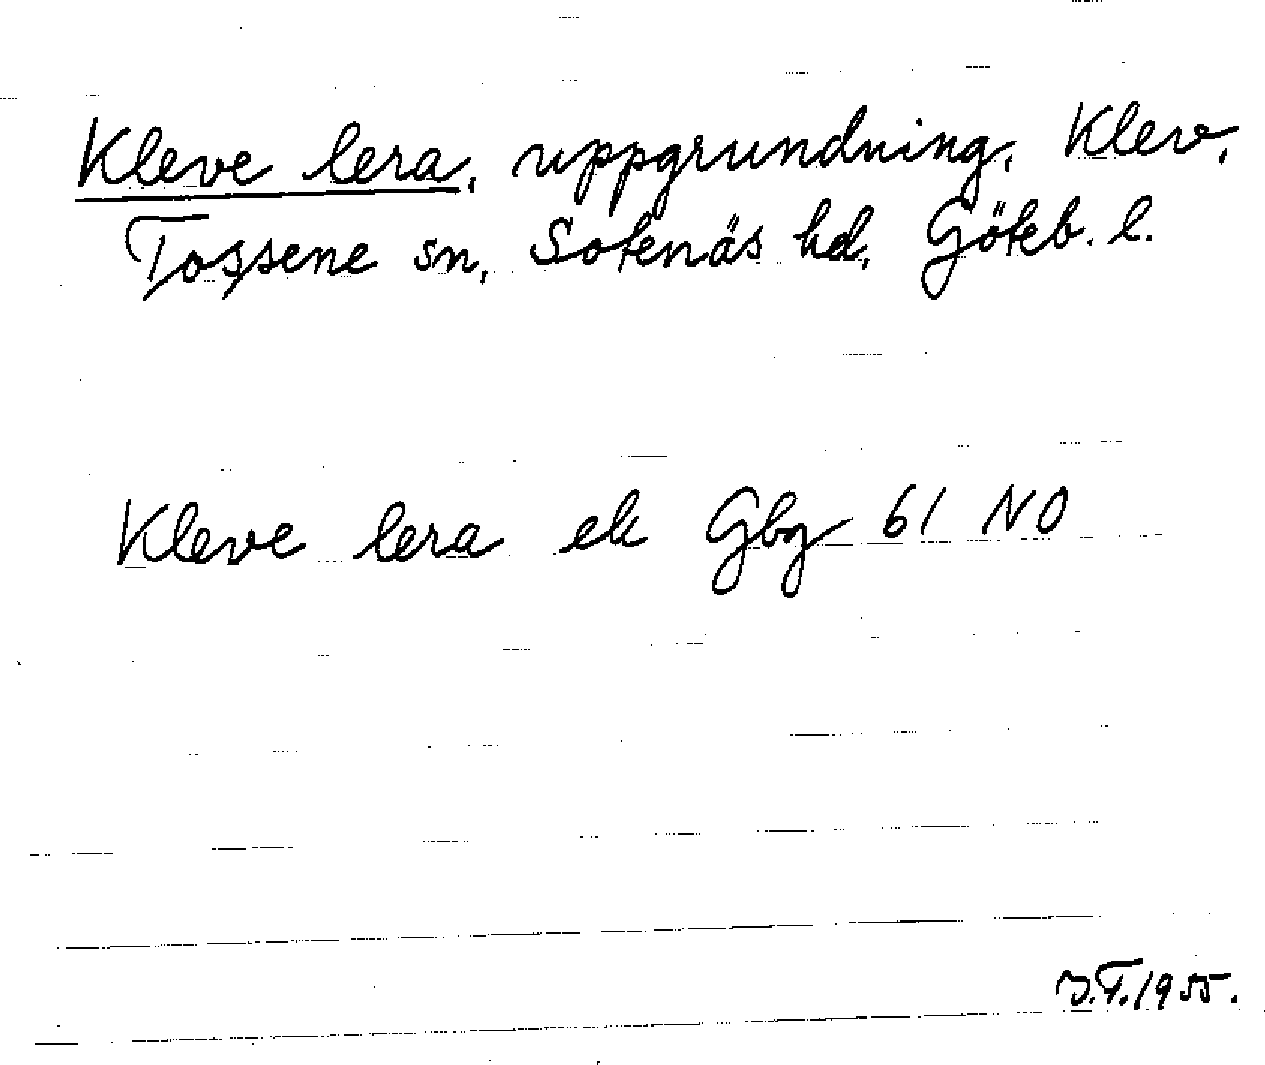 Kleve lera, uppgrundning, Klev,
Tossene sn, Sotenäs hd, Göteb. l.
Kleve lera ek Gbg 61 NO
J.F. 1955.